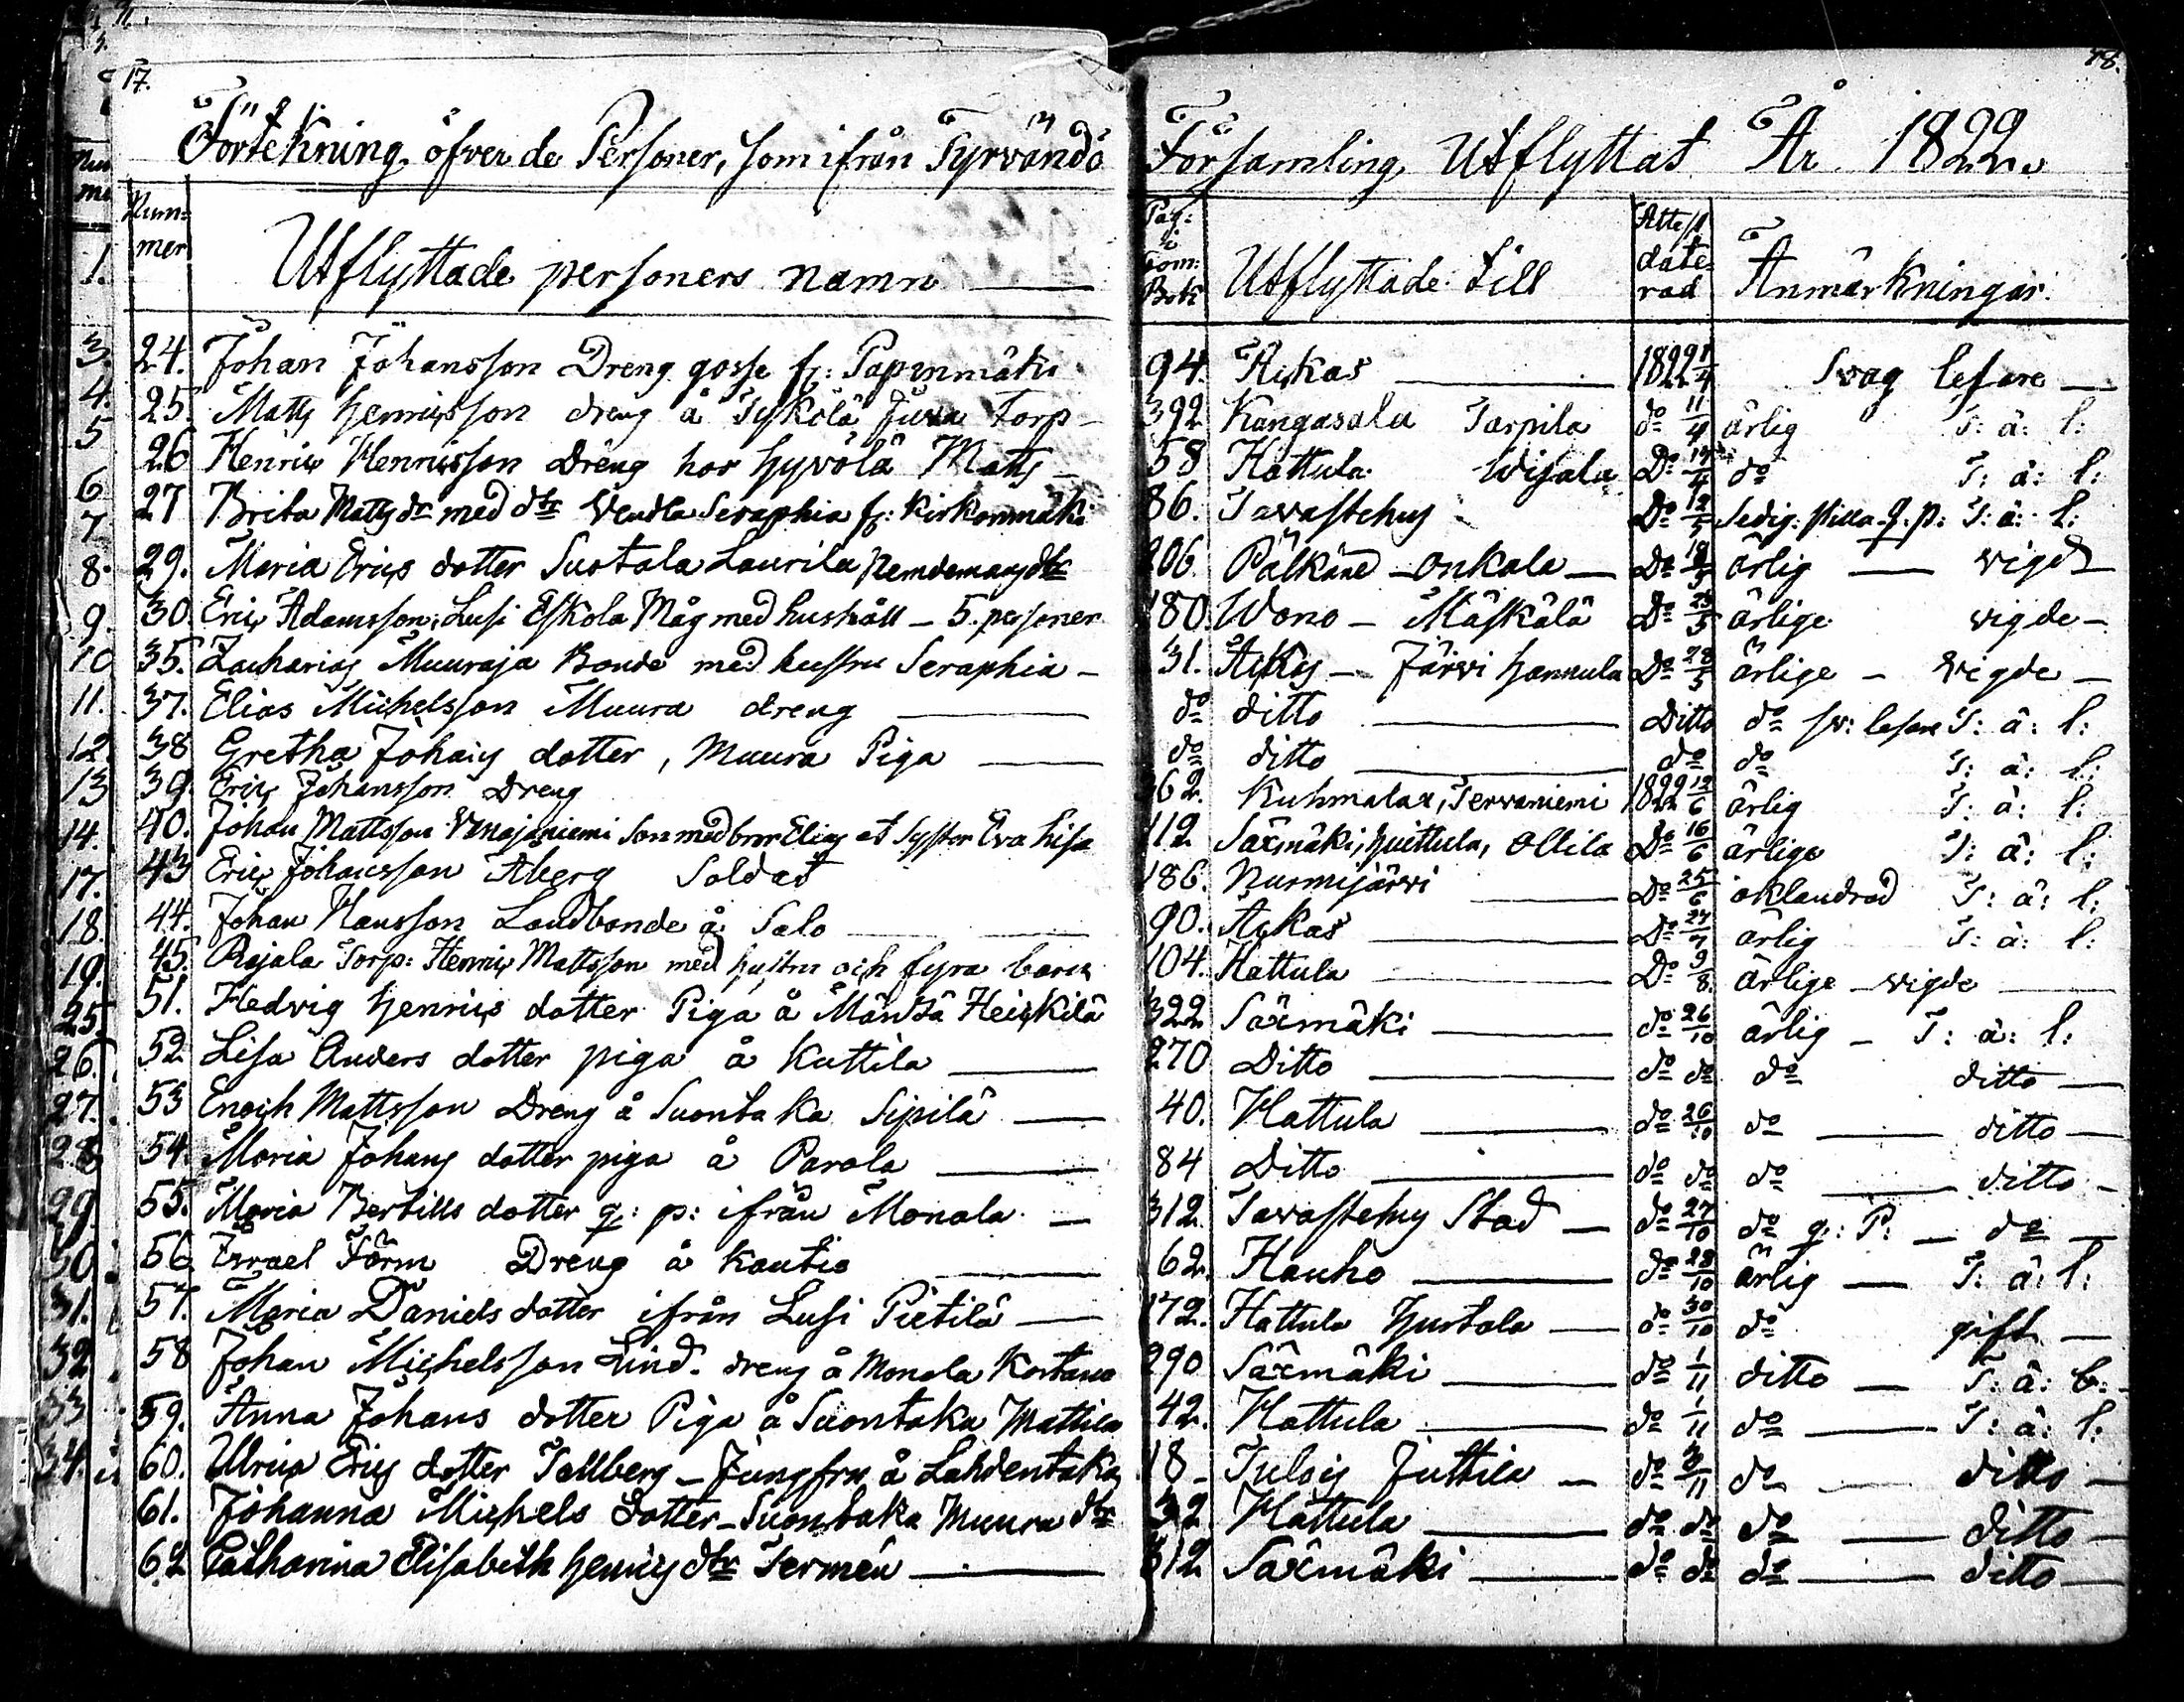 17.
Förtekning öfver de Personer, som ifrån Tyrvändö Församling Utflyttat År 1822.
18.
Num-
mer
Utflyttade personers namn
Pag:
i
Com:
Bok
Utflyttade till
Attest
date-
rad
Anmärkningar.
24. Johan Johansson Dreng gosse fr: Papinmäki 94. Ackas 1822 /4 Svag läsare
25. Matts Henricsson dreng å Syköla Juva Torp 392 Kangasala Tarpila do 11/4 ärlig T: ä: l:
26 Henric Henricsson Dreng hos Hyvölä Matts 58 Hattula Do /4 do T: ä: l:
27 Brita Matts dr med dtr Vendla Seraphia fr: Kirkonmäki 86. Tavastehus Do 12/5 Sedig: q. p: T: ä: l:
29. Maria Erics dotter Suotala Laurila Nemdemans dtr 206 Pälkäne Onkala Do 18/5 ärlig vigd
30. Eric Adamsson, Lusi Eskola Måg med hushåll 5. personer 180. Wono Mäskälä Do 25/5 ärlige vigde
35. Zacharias Muuraja Bonde med hustru Seraphia 31. Ackas Järvi Hannula Do 28/5 ärlige vigde
37. Elias Michelsson Muura dreng do ditto Ditto do sv: T: ä: l:
38 Gretha Johans dotter, Muura Piga do ditto do do T: ä: l:
39 Eric Johansson Dreng 362. Kuhmalax, Tervaniemi 1822 12/6 ärlig T: ä: l:
40. Johan Mattsson Venajaniemi Son med bror Elias et Syster Eva Lisa 112 Säxmäki, Huittula, Ollila Do 16/6 ärlige T: ä: l:
43 Eric Johansson Åberg Soldat 186. Nurmijärvi Do 25/6 oklandrad T: ä: l:
44. Johan Hansson Landbonde å Salo 90. Ackas Do 27/7 ärlig T: ä: l:
45. Rajala Torp: Henric Mattsson med hustru och fyra barn 104. Hattula Do 9/8. ärlige vigde
51. Hedvig Henrics dotter Piga å Mäntä Heickilä 322 Säxmäki do 26/10 ärlig T: ä: l:
52 Lisa Anders dotter piga å Kuttila 270 Ditto do do do ditto
53 Enoch Mattsson Dreng å Suontaka Sipilä 40. Hattula do 26/10 do ditto
54. Maria Johans dotter piga å Parola 84 Ditto do do do ditto
55. Maria Bertills dotter q: p: ifrån Monala 312. Tavastehus Stad do 27/10 do q: P: do
56 Israel Form Dreng å Kautio 62. Hauho do 28/10 ärlig T: ä: l:
57. Maria Daniels dotter ifrån Lusi Pietilä 172. Hattula Hurtala do 30/10 do gift
58 Johan Michelsson Lind. dreng å Monala Kortano 290 Säxmäki do 1/11 ditto T: ä: l:
59. Anna Johans dotter Piga å Suontaka Mattila 42. Hattula do 1/11 do T: ä: l:
60. Ulrica Erics dotter Tallberg Jungfru å Lahdentaka 18 Tulois Juttila do 3/11 do ditto
61. Johanna Michels Dotter Suontaka Muura dtr 32 Hattula do do do ditto
62 Catharina Elisabeth Henrics dtr Termén 312 Säxmäki do do do ditto